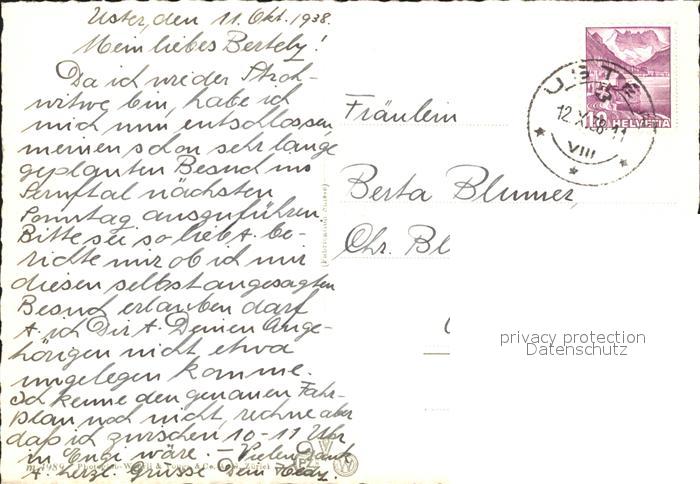 Uster, den 11. Okt. 1938.
Mein liebes Bertely!
Da ich wieder Stroh-
witwe bin, habe ich
mich nun entschlossen
meinen schon sehr lange
geplanten Besuch ins
Sernftal nächsten
Sonntag auszuführen.
Bitte sei so lieb & be-
richte mir ob ich mir
diesen selbst angesagten
Besuch erlauben darf
& ich Dir & Deinen Ange-
hörigen nicht etwa
ungelegen komme.
Ich kenne den genauen Fahr-
plan noch nicht, rechne aber
daß ich zwischen 10-11 Uhr
in Engi wäre. – Vielen Dank
& herzl. Grüsse Dein Hedy.
Fräulein
Berta Blumer,
Chr. Bl
USTER
12.X.38-11
VIII
10 HELVETIA
privacy protection
Datenschutz